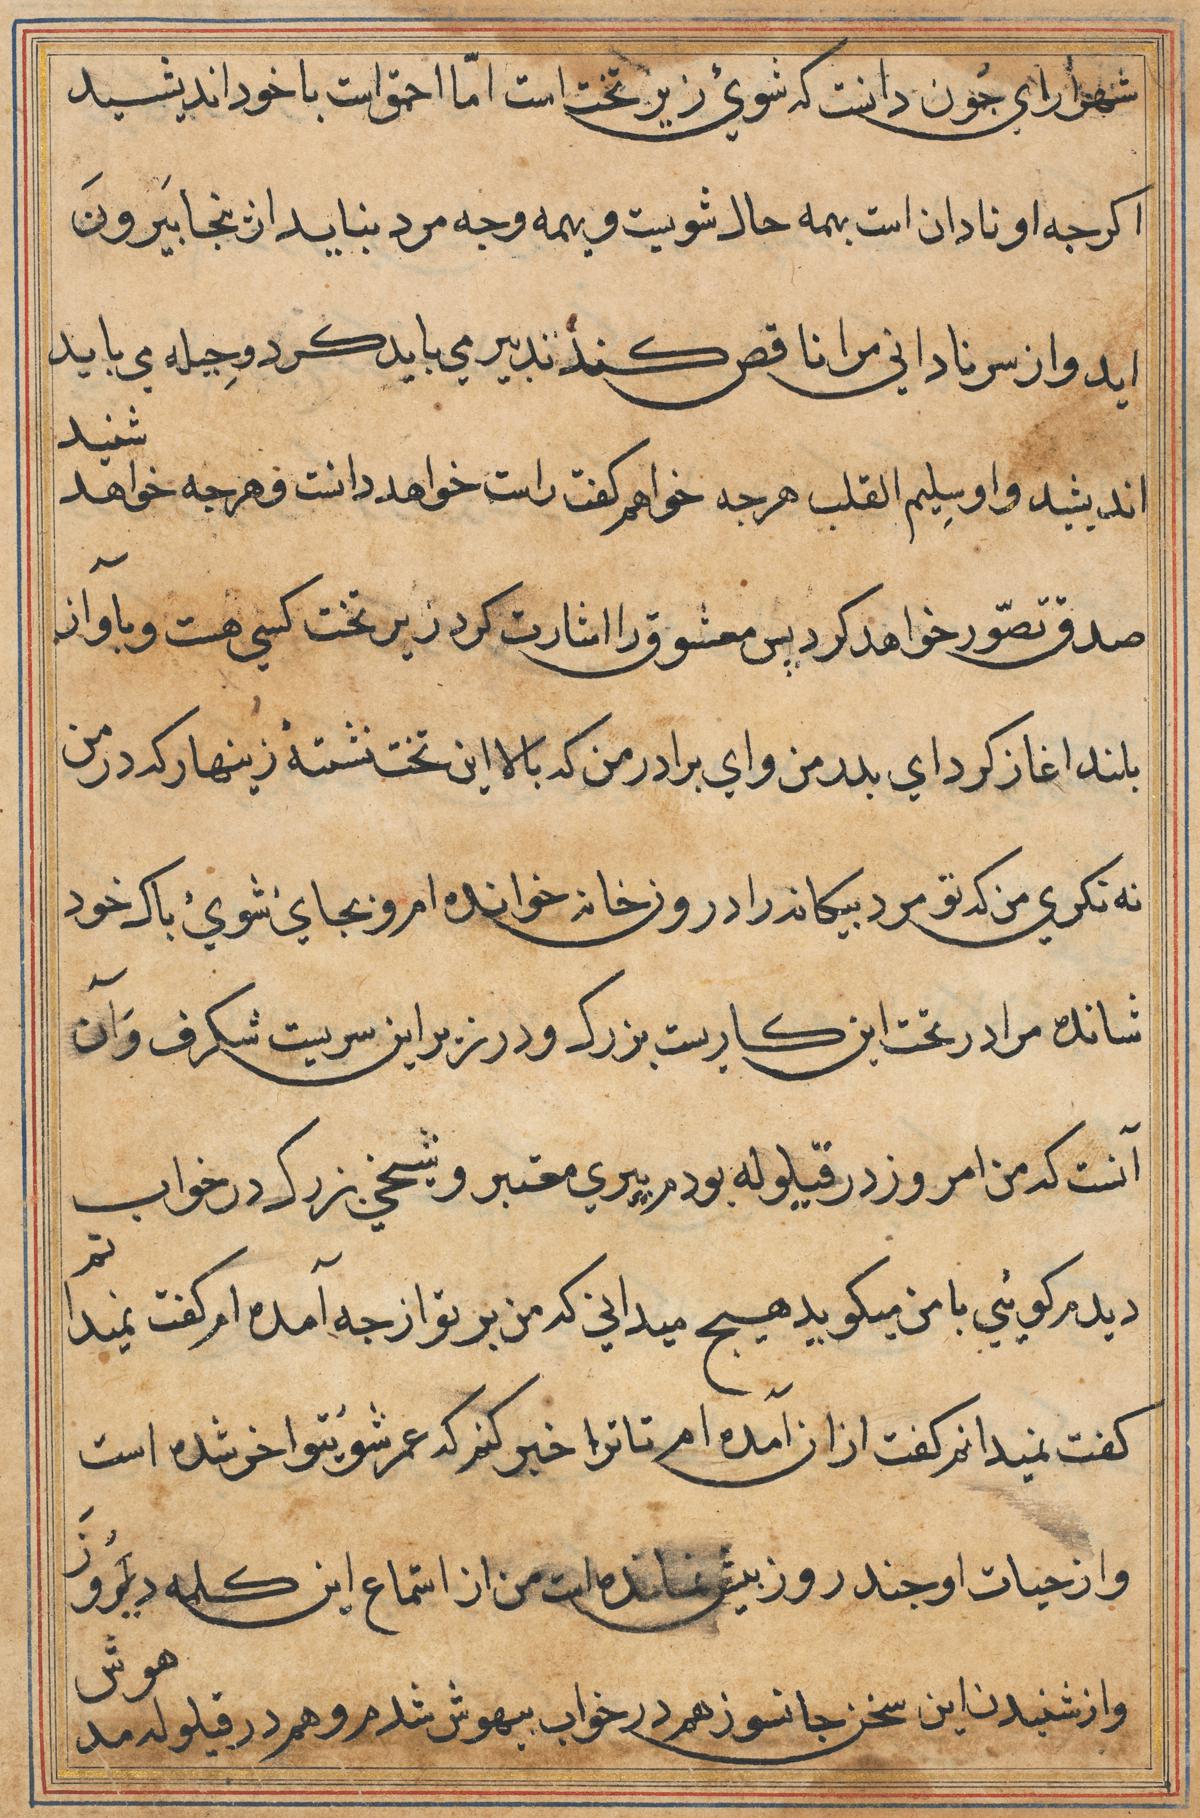 شهرآرای جون دانست که شوئ زیر تخت است امّا احمق است با خود اندیشید
اکرجه او نادان است بهمه حال شویست و بهمه وجه مرد بناید ازینجا بَیرونَ
اید و از سر نادانی مرا ناقص کند تدبیر می باید کرد و حِیله می باید
اندیشید و او سِلیم القلب هرجه خواهم کفت راست خواهد دانست و هرجه خواهد شنید
صدق تصّور خواهد کرد پس معشوق را اشارت کرد زیر تخت کسی هست و بآواز
بلند اغاز کرد ای بدر من و ای برادر من که بالا این تخت نشستهٔ زینهار که در من
نه نکری من که تو مرد بیکانه را در روز خانه خوانده ام و بجای شوئ باک خود
شانده مرا در تخت این کاریست بزرک و در زیر این سریست شکرف وَآن
آنست که من امروز در قیلوله بودم پیری معتبر و شیخی بزرک در خواب
دیدم کوئی با من میکوید هیج میدانی که من بر تو از جه آمده ام کفت نمیدانم
کفت نمیدانم کفت از ان آمده ام تا ترا خبر کنم که عمر شوَیتو اخر شده است
و از حیات او جند روز بیش نمانده است من از استماع این کلمه دلدوز
و از شنیدن این سخن جانسوز هم در خواب بیهوش شدم و هم در قیلوله مدهوش